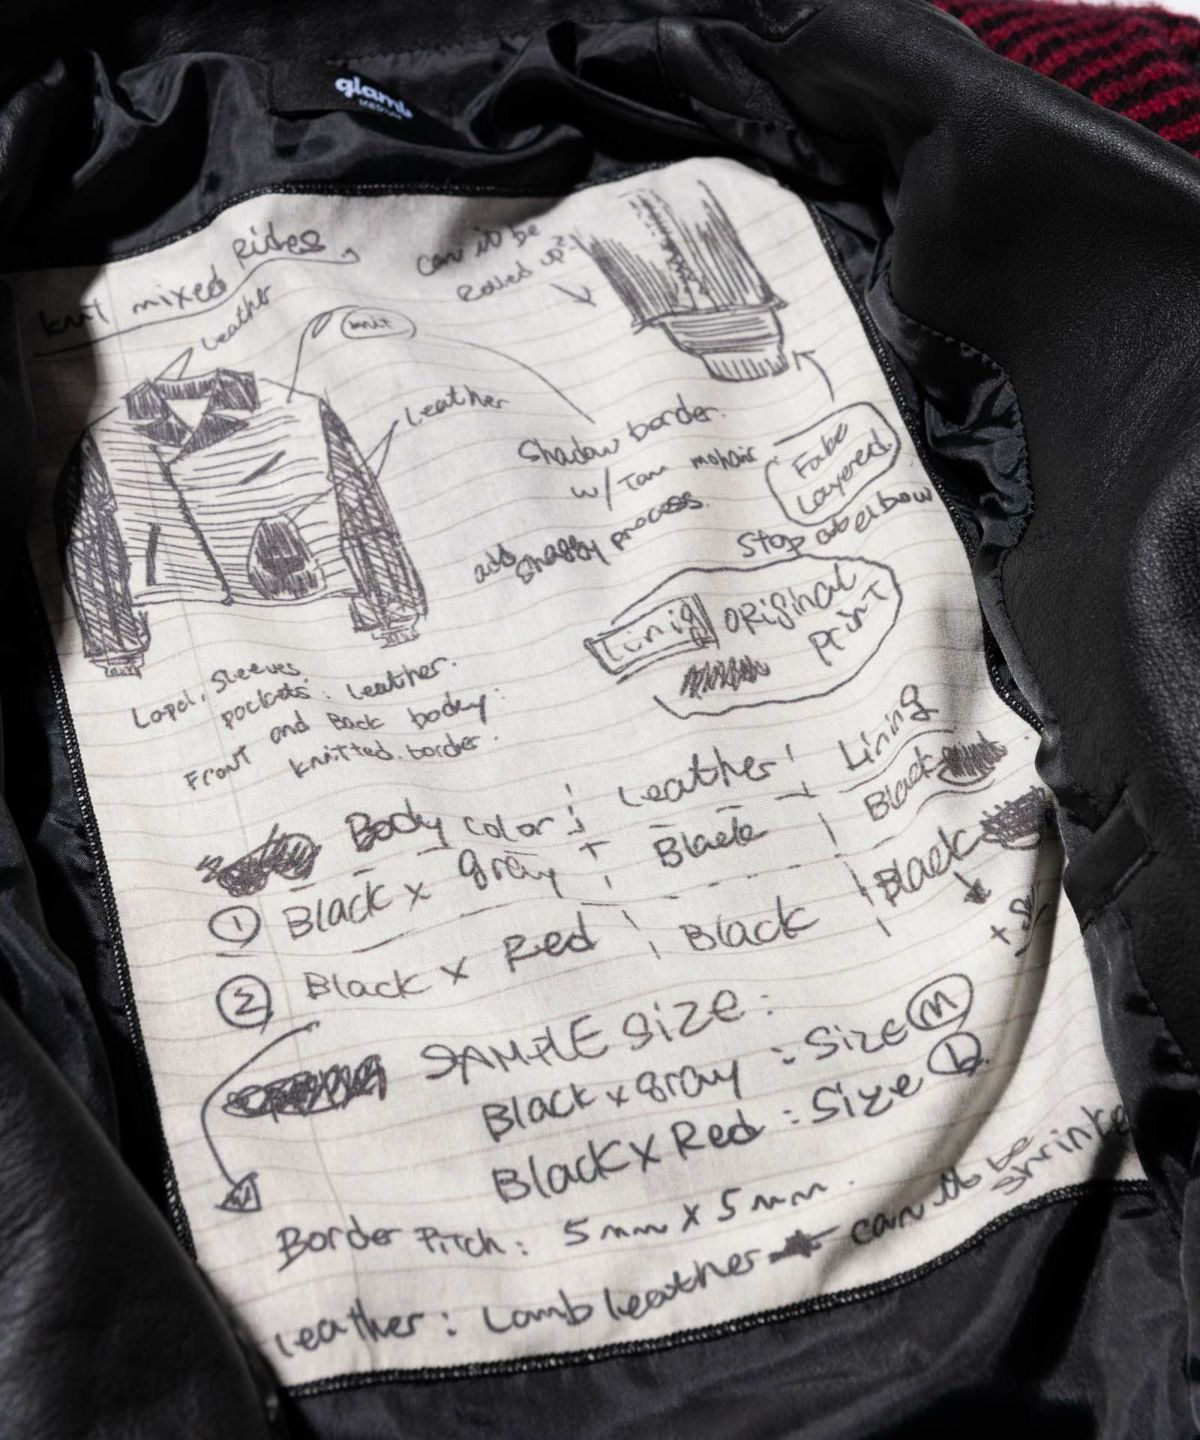 glamb
knit mixed Riders
Leather
knit
Leather
can it be
Rolled up?
Shadow border.
w/ Tam mohair
add shaggy process.
Fake
Layered.
Stop at elbow
Linig ORiginal
print
Lapel, Sleeves.
pockets: Leather.
Front and Back body:
knitted border.
Body color: Leather Lining
① Black x gray Black Black
② Black x Red Black Black
SAMPLE Size:
Black x gray : Size M
Black x Red : Size L
Border Pitch: 5mm x 5mm.
Leather: Lamb leather can it be